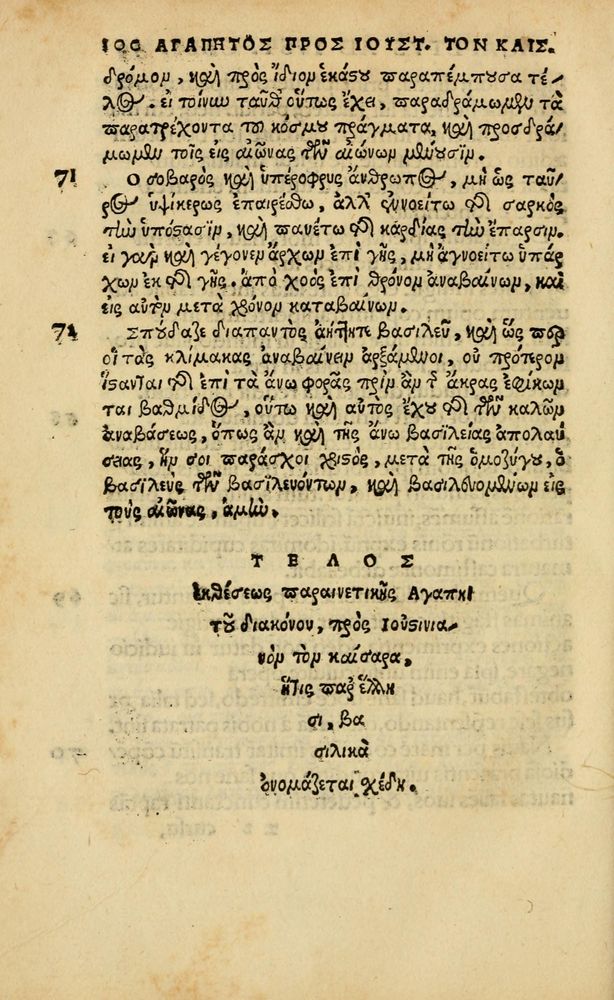 100 ΑΓΑΠΗΤΟΣ ΠΡΟΣ ΙΟΥΣΤ. ΤΟΝ ΚΑΙΣ.
δρόμον, καὶ πρὸς ἴδιον ἑκάστου παραπέμπουσα τέ-
λος. εἰ τοίνυν ταῦθ᾽ οὕτως ἔχει, παραδράμωμεν τὰ
παρατρέχοντα τοῦ κόσμου πράγματα, καὶ προσδρά-
μωμεν τοῖς εἰς αἰῶνας τῶν αἰώνων μένουσιν.
71 Ο σοβαρὸς καὶ ὑπέροφρυς ἄνθρωπος, μὴ ὡς ταῦ-
ρος ὑψίκερως ἐπαιρέσθω, ἀλλ᾽ ἐννοείτω τῆς σαρκὸς
τὴν ὑπόστασιν, καὶ παυέτω τῆς καρδίας τὴν ἔπαρσιν.
εἰ γὰρ καὶ γέγονεν ἄρχων ἐπὶ γῆς, μὴ ἀγνοείτω ὑπάρ
χων ἐκ τῆς γῆς. ἀπὸ χοὸς ἐπὶ θρόνον ἀναβαίνων, καὶ
εἰς αὐτὸν μετὰ χρόνον καταβαίνων.
72 Σπούδαζε διαπαντὸς ἀήττητε βασιλεῦ, καὶ ὥς περ
οἱ τὰς κλίμακας ἀναβαίνειν ἀρξάμενοι, οὐ πρότερον
ἵστανται τῆς ἐπὶ τὰ ἄνω φορᾶς πρὶν ἂν τῆς ἄκρας ἐφίκων
ται βαθμίδος, οὕτω καὶ αὐτὸς ἔχου τῆς τῶν καλῶν
ἀναβάσεως, ὅπως ἂν καὶ τῆς ἄνω βασιλείας ἀπολαύ
σειας, ἥν σοι παράσχοι χριστὸς, μετὰ τῆς ὁμοζύγου, ὁ
βασιλεὺς τῶν βασιλευόντων, καὶ βασιλευομένων εἰς
τοὺς αἰῶνας, ἀμήν.
ΤΕΛΟΣ
Ἐκθέσεως παραινετικῆς Ἀγαπη-
τοῦ διακόνου, πρὸς Ἰουστινια-
νὸν τὸν καίσαρα,
ἥτις παρ᾽ ἕλλη
σι, βα
σιλικὰ
ὀνομάζεται σχέδη.